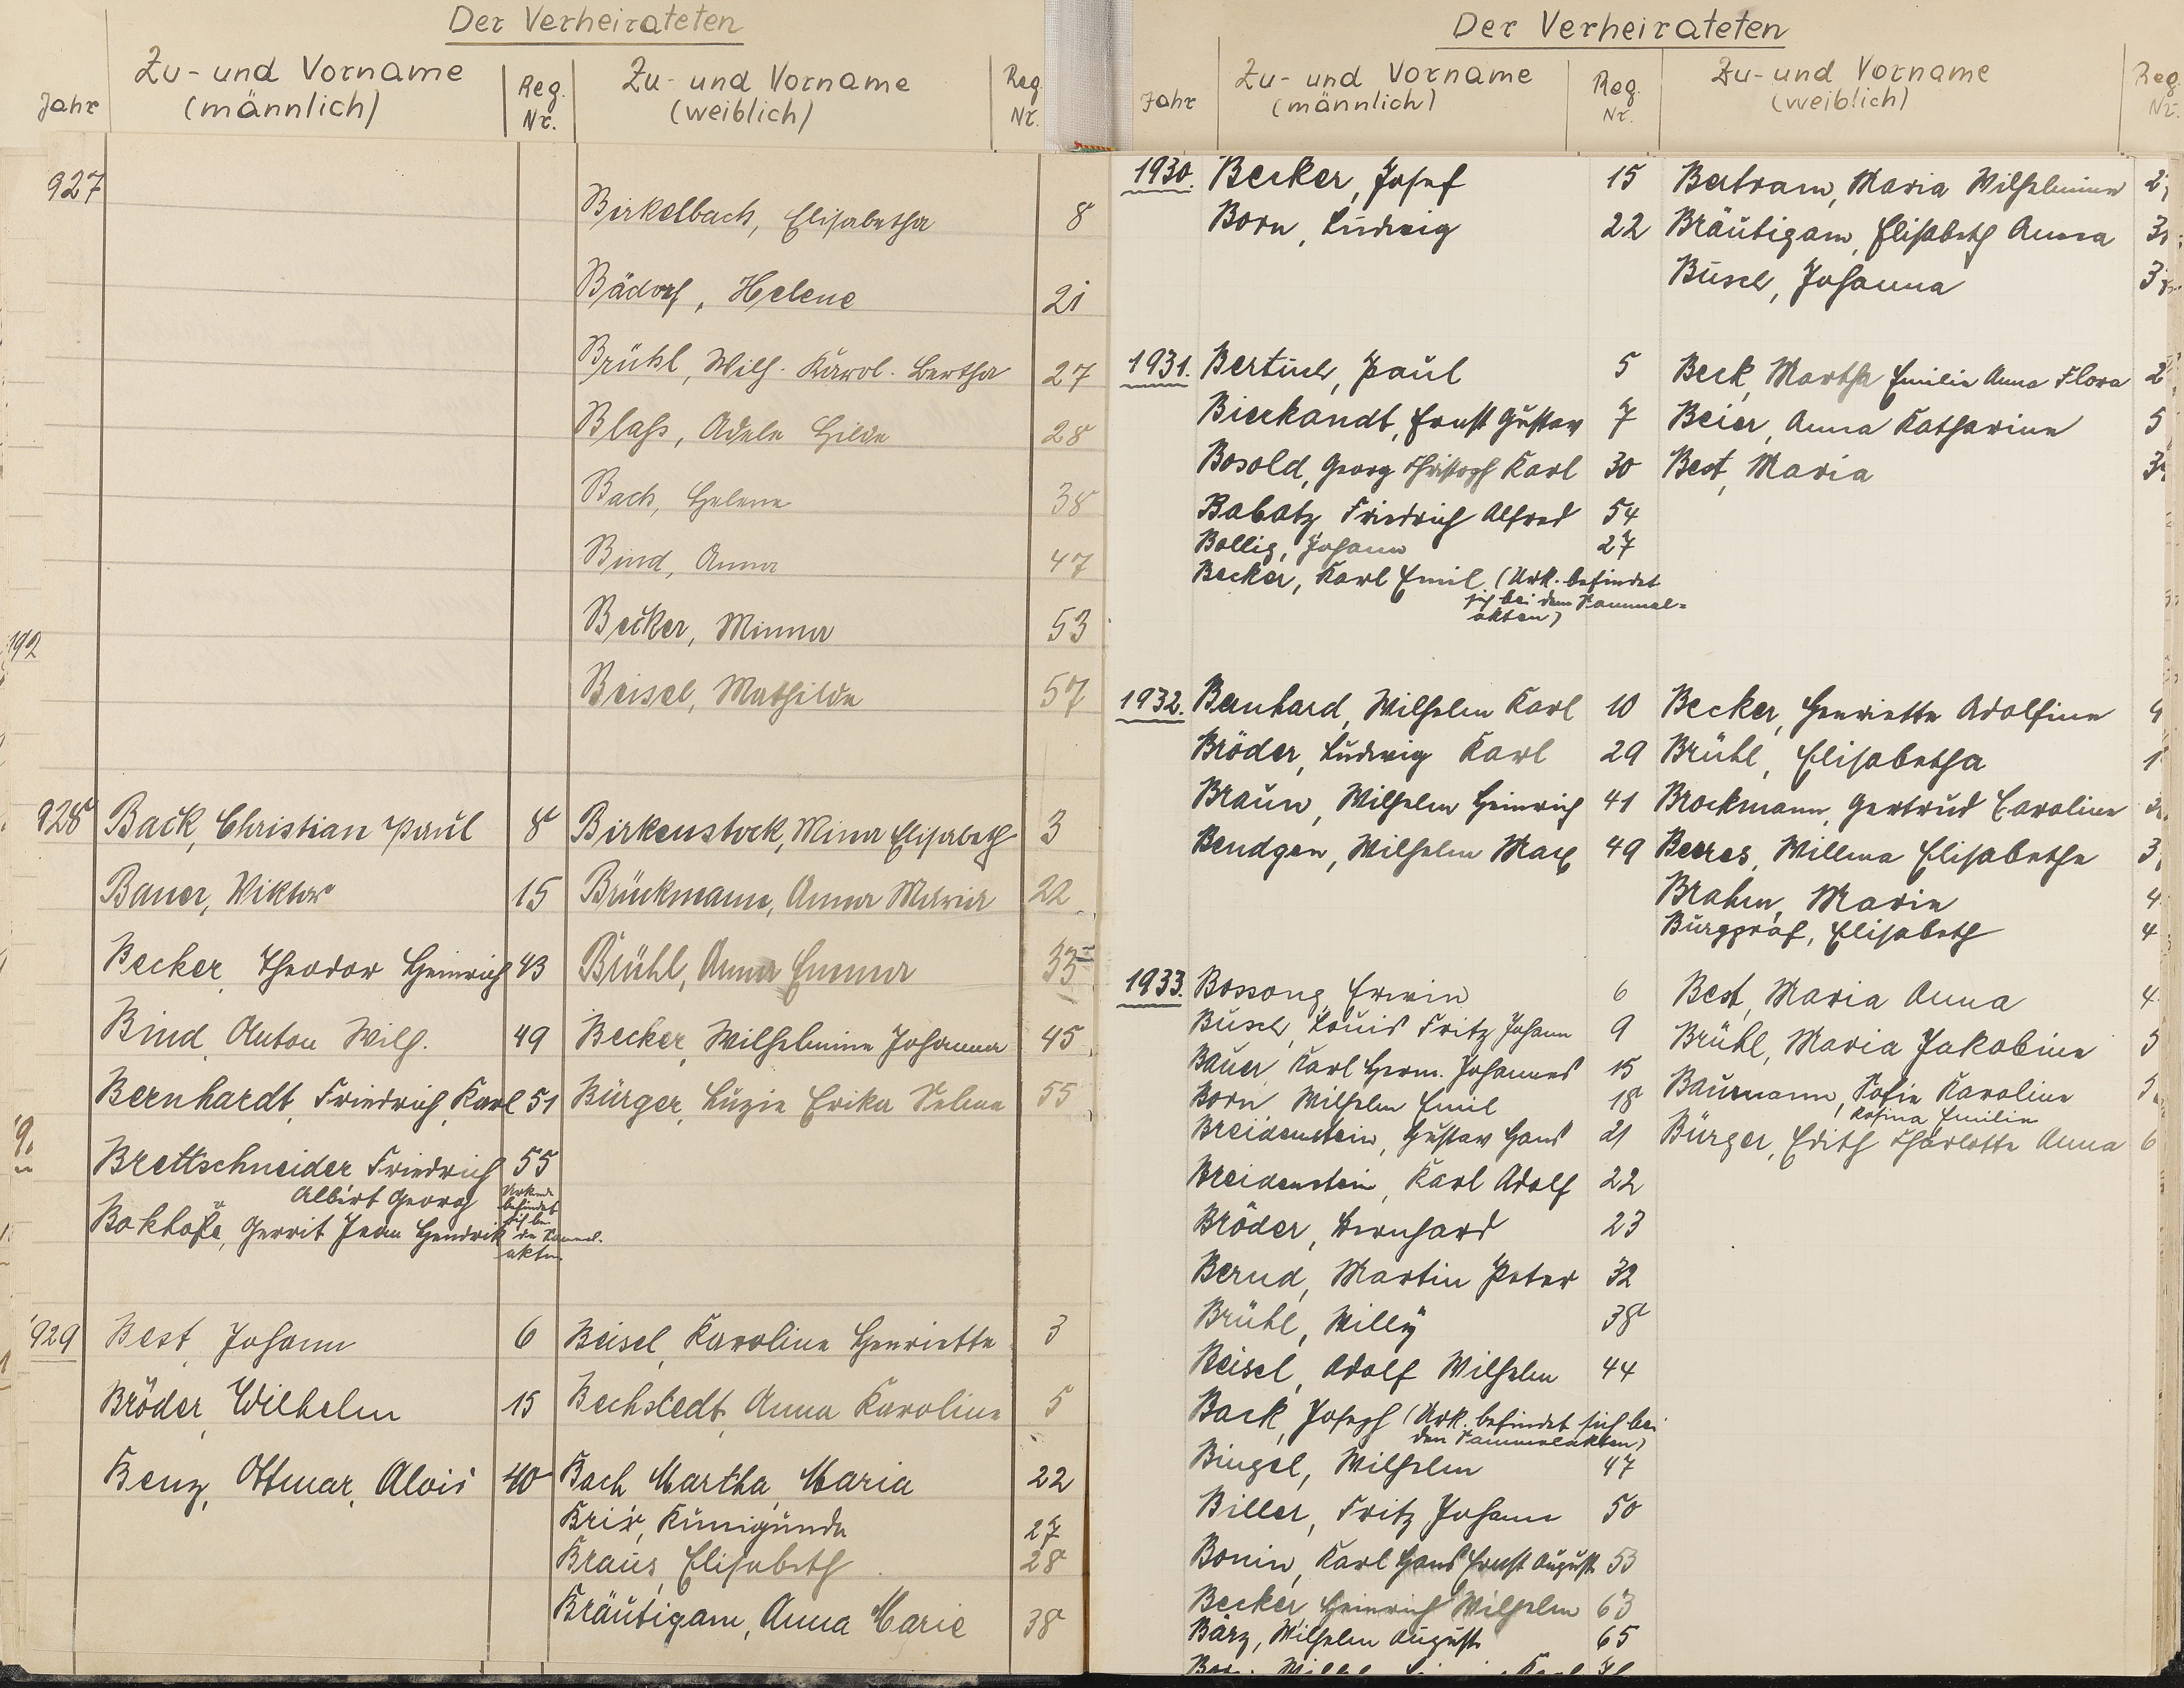 Der Verheirateten
Jahr Zu- und Vorname (männlich) Reg. Nr. Zu- und Vorname (weiblich) Reg. Nr.
927
Birkelbach, Elisabetha 8
Bädorf, Helene 21
Brühl, Wilh. Karol. Bertha 27
Blahs, Adele Hilde 28
Bach, Helene 38
Bind, Anna 47
Becker, Minna 53
192
Beisel, Mathilde 57
928 Back, Christian Paul 8 Birkenstock, Mina Elisabeth 3
Bauer, Viktor 15 Brückmann, Anna Maria 22
Becker, Theodor Heinrich 43 Brühl, Anna Emma 33
Bind, Anton Wilh. 49 Becker, Wilhelmine Johanna 45
Bernhardt, Friedrich Karl 51 Bürger, Luzie Erika Selma 55
Brettschneider Friedrich 55
Albert Georg
Gerrit Jean Hendrik
befindet
akten
929 Best, Johann 6 Beisel, Karoline Henriette 3
Bröder, Wilhelm 15 Bechstedt, Anna Karoline 5
Benz, Ottmar, Alois 40 Bach Martha, Maria 22
Brix, Kunigunda 27
Braus, Elisabeth 28
Bräutigam, Anna Marie 38
Der Verheirateten
Jahr Zu- und Vorname (männlich) Reg. Nr. Zu- und Vorname (weiblich) Reg. Nr.
1930. Becker, Josef 15 Bertram, Maria Wilhelmine
Born, Ludwig 22 Bräutigam, Elisabeth Anna
Busch, Johanna
1931. Bertuch, Paul 5 Beck, Martha Emilie Anna Flora
Bierkandt, Ernst Gustav 7 Beier, Anna Katharine
Bosold, Georg Christoph Karl 30 Best, Maria
Babatz, Friedrich Alfred 54
Bollig, Johann 27
Becker, Karl Emil (Urk. befindet
sich bei den Sammel-
akten)
1932. Bernhard, Wilhelm Karl 10 Becker, Henriette Adolfine
Bröder, Ludwig Karl 29 Brühl, Elisabetha
Braun, Wilhelm Heinrich 41 Brockmann, Gertrud Caroline
Bendgen, Wilhelm Max 49 Beeres, Willma Elisabethe
Brahm, Marie
Burggraf, Elisabeth
1933. Bossong, Erwin 6 Best, Maria Anna
Busch, Louis Fritz Johann 9 Brühl, Maria Jakobine
Bauer, Karl Herm. Johannes 15 Baumann, Sofie Karoline
Born, Wilhelm Emil 18 Rosina Emilie
Breidenstein, Gustav Hans 21 Bürger, Edith Charlotte Anna
Breidenstein, Karl Adolf 22
Bröder, Bernhard 23
Bernd, Martin Peter 32
Brühl, Willy 38
Beisel, Adolf Wilhelm 44
Back, Joseph (Urk. befindet sich bei
den Sammelakten)
Bingel, Wilhelm 47
Biller, Fritz Johann 50
Bonin, Karl Hans Ernst August 53
Becker, Heinrich Wilhelm 63
Bärz, Wilhelm August 65